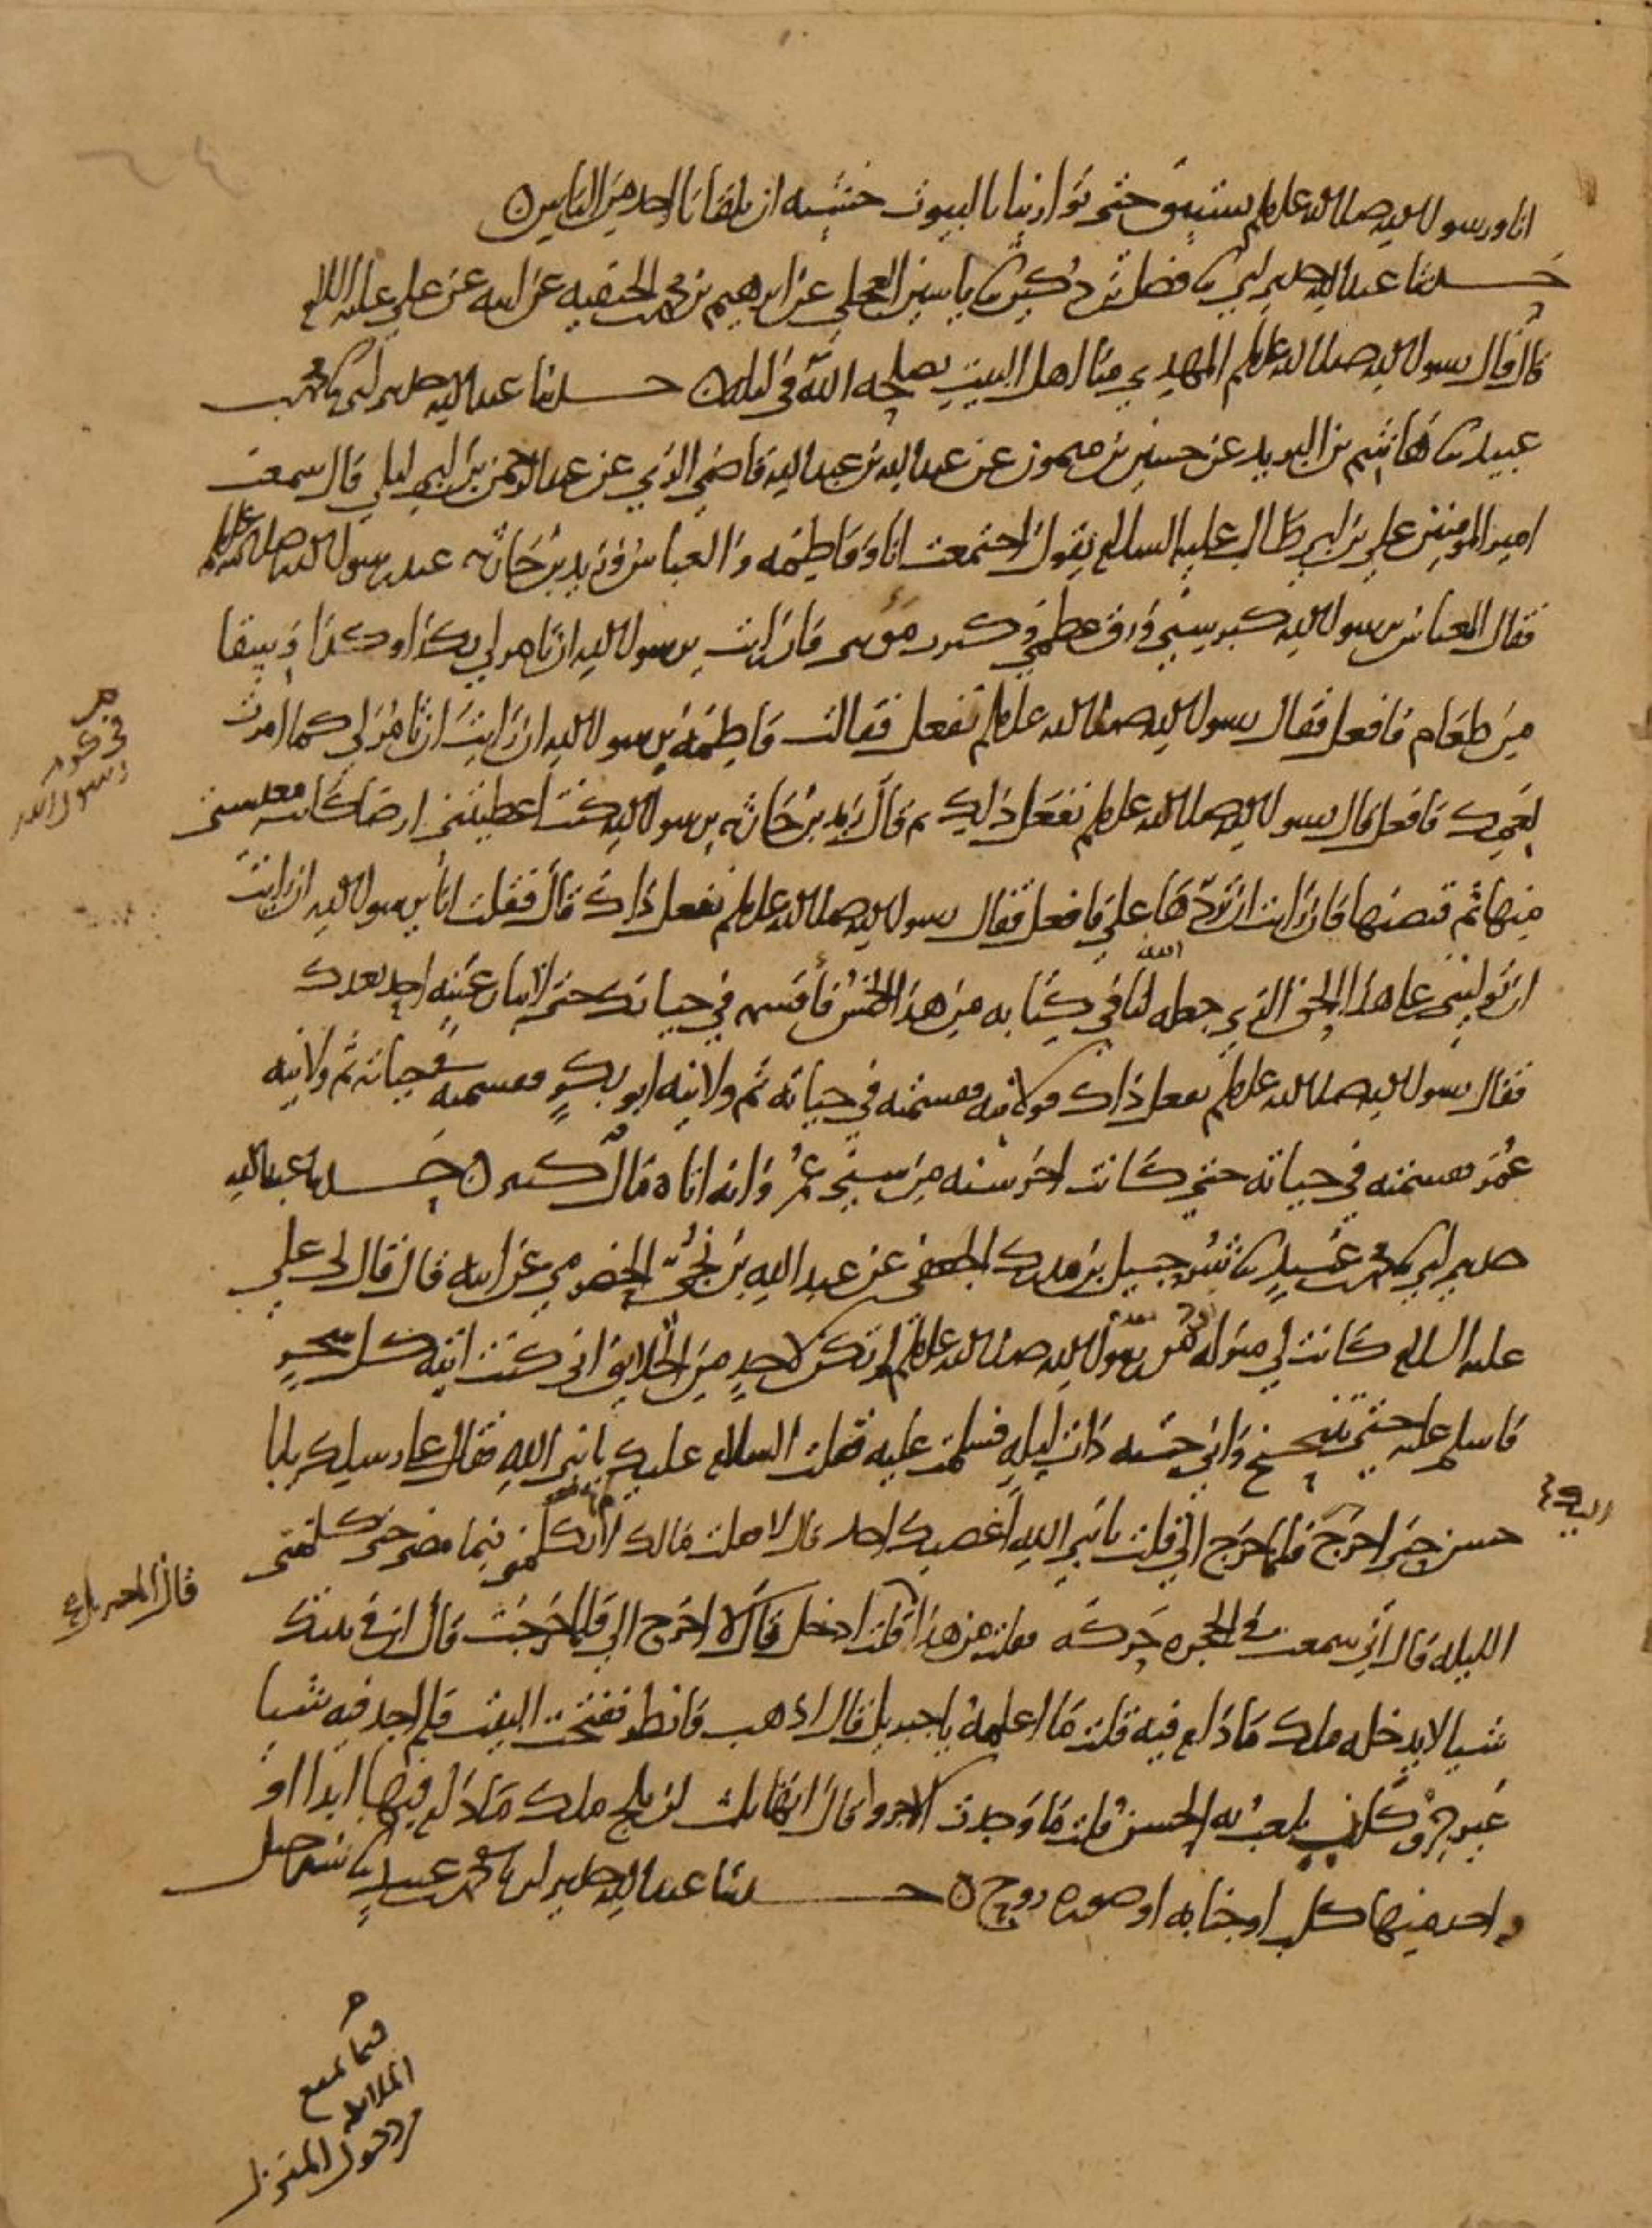 انا ورسول الله صلى الله عليه وسلم نستبق حتى توارينا بالبيوت خشيه ان يلقانا احد من الناس ه
حدثنا عبد الله حدثني ابي ثنا فضل بن دكين ثنا ياسين العجلي عن ابرهيم بن محمد بن الحنفيه عن ابيه عن علي عليه السلام
قال قال رسول الله صلى الله عليه وسلم المهدي منا اهل البيت يصلحه الله في ليله ه حدثنا عبد الله حدثني ابي ثنا محمد بن
عبيد ثنا هاشم بن البريد عن حسين بن ميمون عن عبد الله بن عبد الله قاضي الري عن عبد الرحمن بن ابي ليلى قال سمعت
امير المومنين علي بن ابي طالب عليه السلام يقول اجتمعت انا وفاطمه والعباس وزيد بن حارثه عند رسول الله صلى الله عليه وسلم
فقال العباس يرسول الله كبر سني ورق عظمي وكبرت مؤنتي فان رايت يرسول الله ان تامر لي بكذا وكذا وسقا
من طعام فافعل فقال رسول الله صلى الله عليه وسلم نفعل فقالت فاطمه يرسول الله ان رايت ان تامر لي كما امرت
لعمك فافعل قال رسول الله صلى الله عليه وسلم نفعل ذلك ثم قال زيد بن حارثه يرسول الله كنت اعطيتني ارضا كانت معيشتي
منها ثم قبضتها فان رايت ان تردها علي فافعل فقال رسول الله صلى الله عليه وسلم نفعل ذاك قال فقلت انا يرسول الله ان رايت
ان توليني على هذا الحق الذي جعله الله لنا في كتابه من هذا الخمس فاقسمه في حياتك حتى لا ينازعنيه احد بعدك
فقال رسول الله صلى الله عليه وسلم نفعل ذاك فولانيه فقسمته في حياته ثم ولانيه ابو بكر فقسمته في حياته ثم ولانيه
عمر فقسمته في حياته حتى كانت اخر سنه من سني عمر وانه اتاه مال كثير ه حدثنا عبد الله
حدثني ابي ثنا محمد بن عبيد ثنا شرحبيل بن مدرك الجعفي عن عبد الله بن نجي الحضرمي عن ابيه قال قال لي علي
عليه السلام كانت لي منزله من رسول الله صلى الله عليه وسلم لم تكن لاحد من الخلايق اني كنت اتيه كل سحر
فاسلم عليه حتى يتنحنح واني جيته ذات ليله فسلمت عليه فقلت السلام عليك يا نبي الله فقال على رسلك يابا
حسن حتى اخرج اليك فلما خرج الي قلت يا نبي الله اغضبك احد قال لا قلت مالك لا تكلمني فيما مضى حتى كلمتني
الليله قال اني سمعت في الحجره حركه فقلت من هذا قال انا جبريل قلت ادخل قال لا اخرج الي فلما خرجت قال ان في بيتك
شيا لا يدخله ملك ما دام فيه قلت ما اعلمه يا جبريل قال اذهب فانظر ففتحت البيت فلم اجد فيه شيا
غير جرو كلب يلعب به الحسن قلت ما وجدت الا جروا قال انها ثلث لن يلج ملك ما دام فيها ابدا
واحد منها كلب او جنابه او صوره روح ه حدثنا عبد الله حدثني ابي ثنا محمد بن عبيد ثنا شرحبيل
في
رسول الله
فيما يمنع
الملائكه
من دخول المنزل